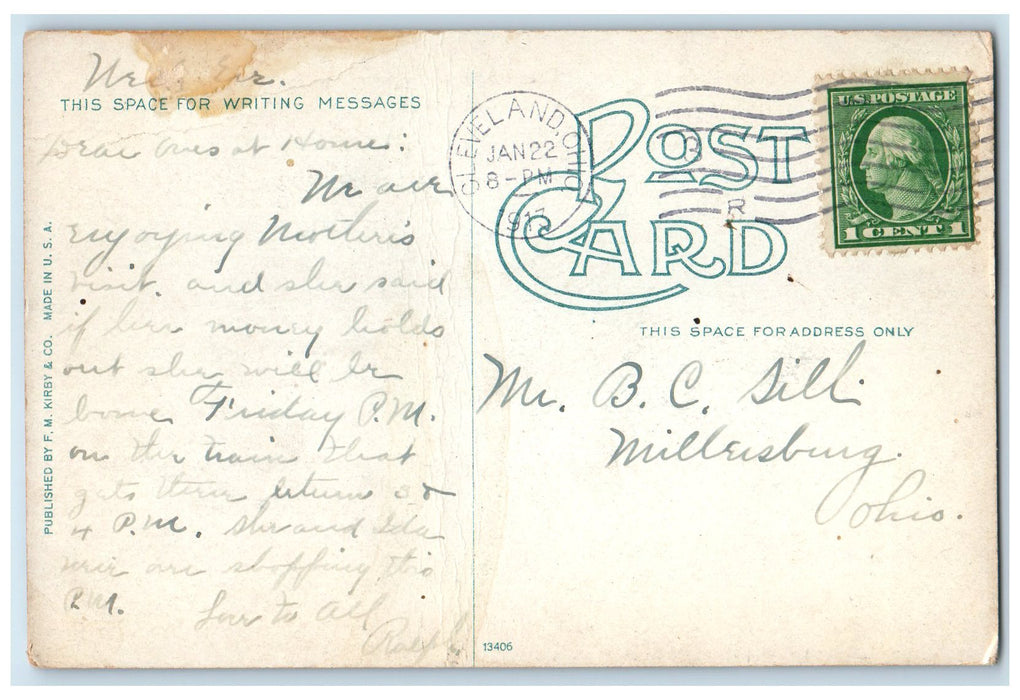 THIS SPACE FOR WRITING MESSAGES
Dear Ones at Home:
We are
enjoying Mother's
visit. and she said
if her money holds
out she will be
home Friday P.M.
on the train that
gets there between 3 &
4 P.M. She and Ida
are shopping this
P.M. Love to All
Ralph
PUBLISHED BY F. M. KIRBY & CO. MADE IN U. S. A.
CLEVELAND, OHIO
JAN 22
8-PM
1913
R
POST
CARD
U.S. POSTAGE
1 CENT 1
THIS SPACE FOR ADDRESS ONLY
Mr. B. C. Sill
Millersburg.
Ohio.
13406